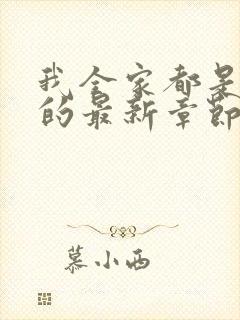 我全家都是
的最新章节
慕小西